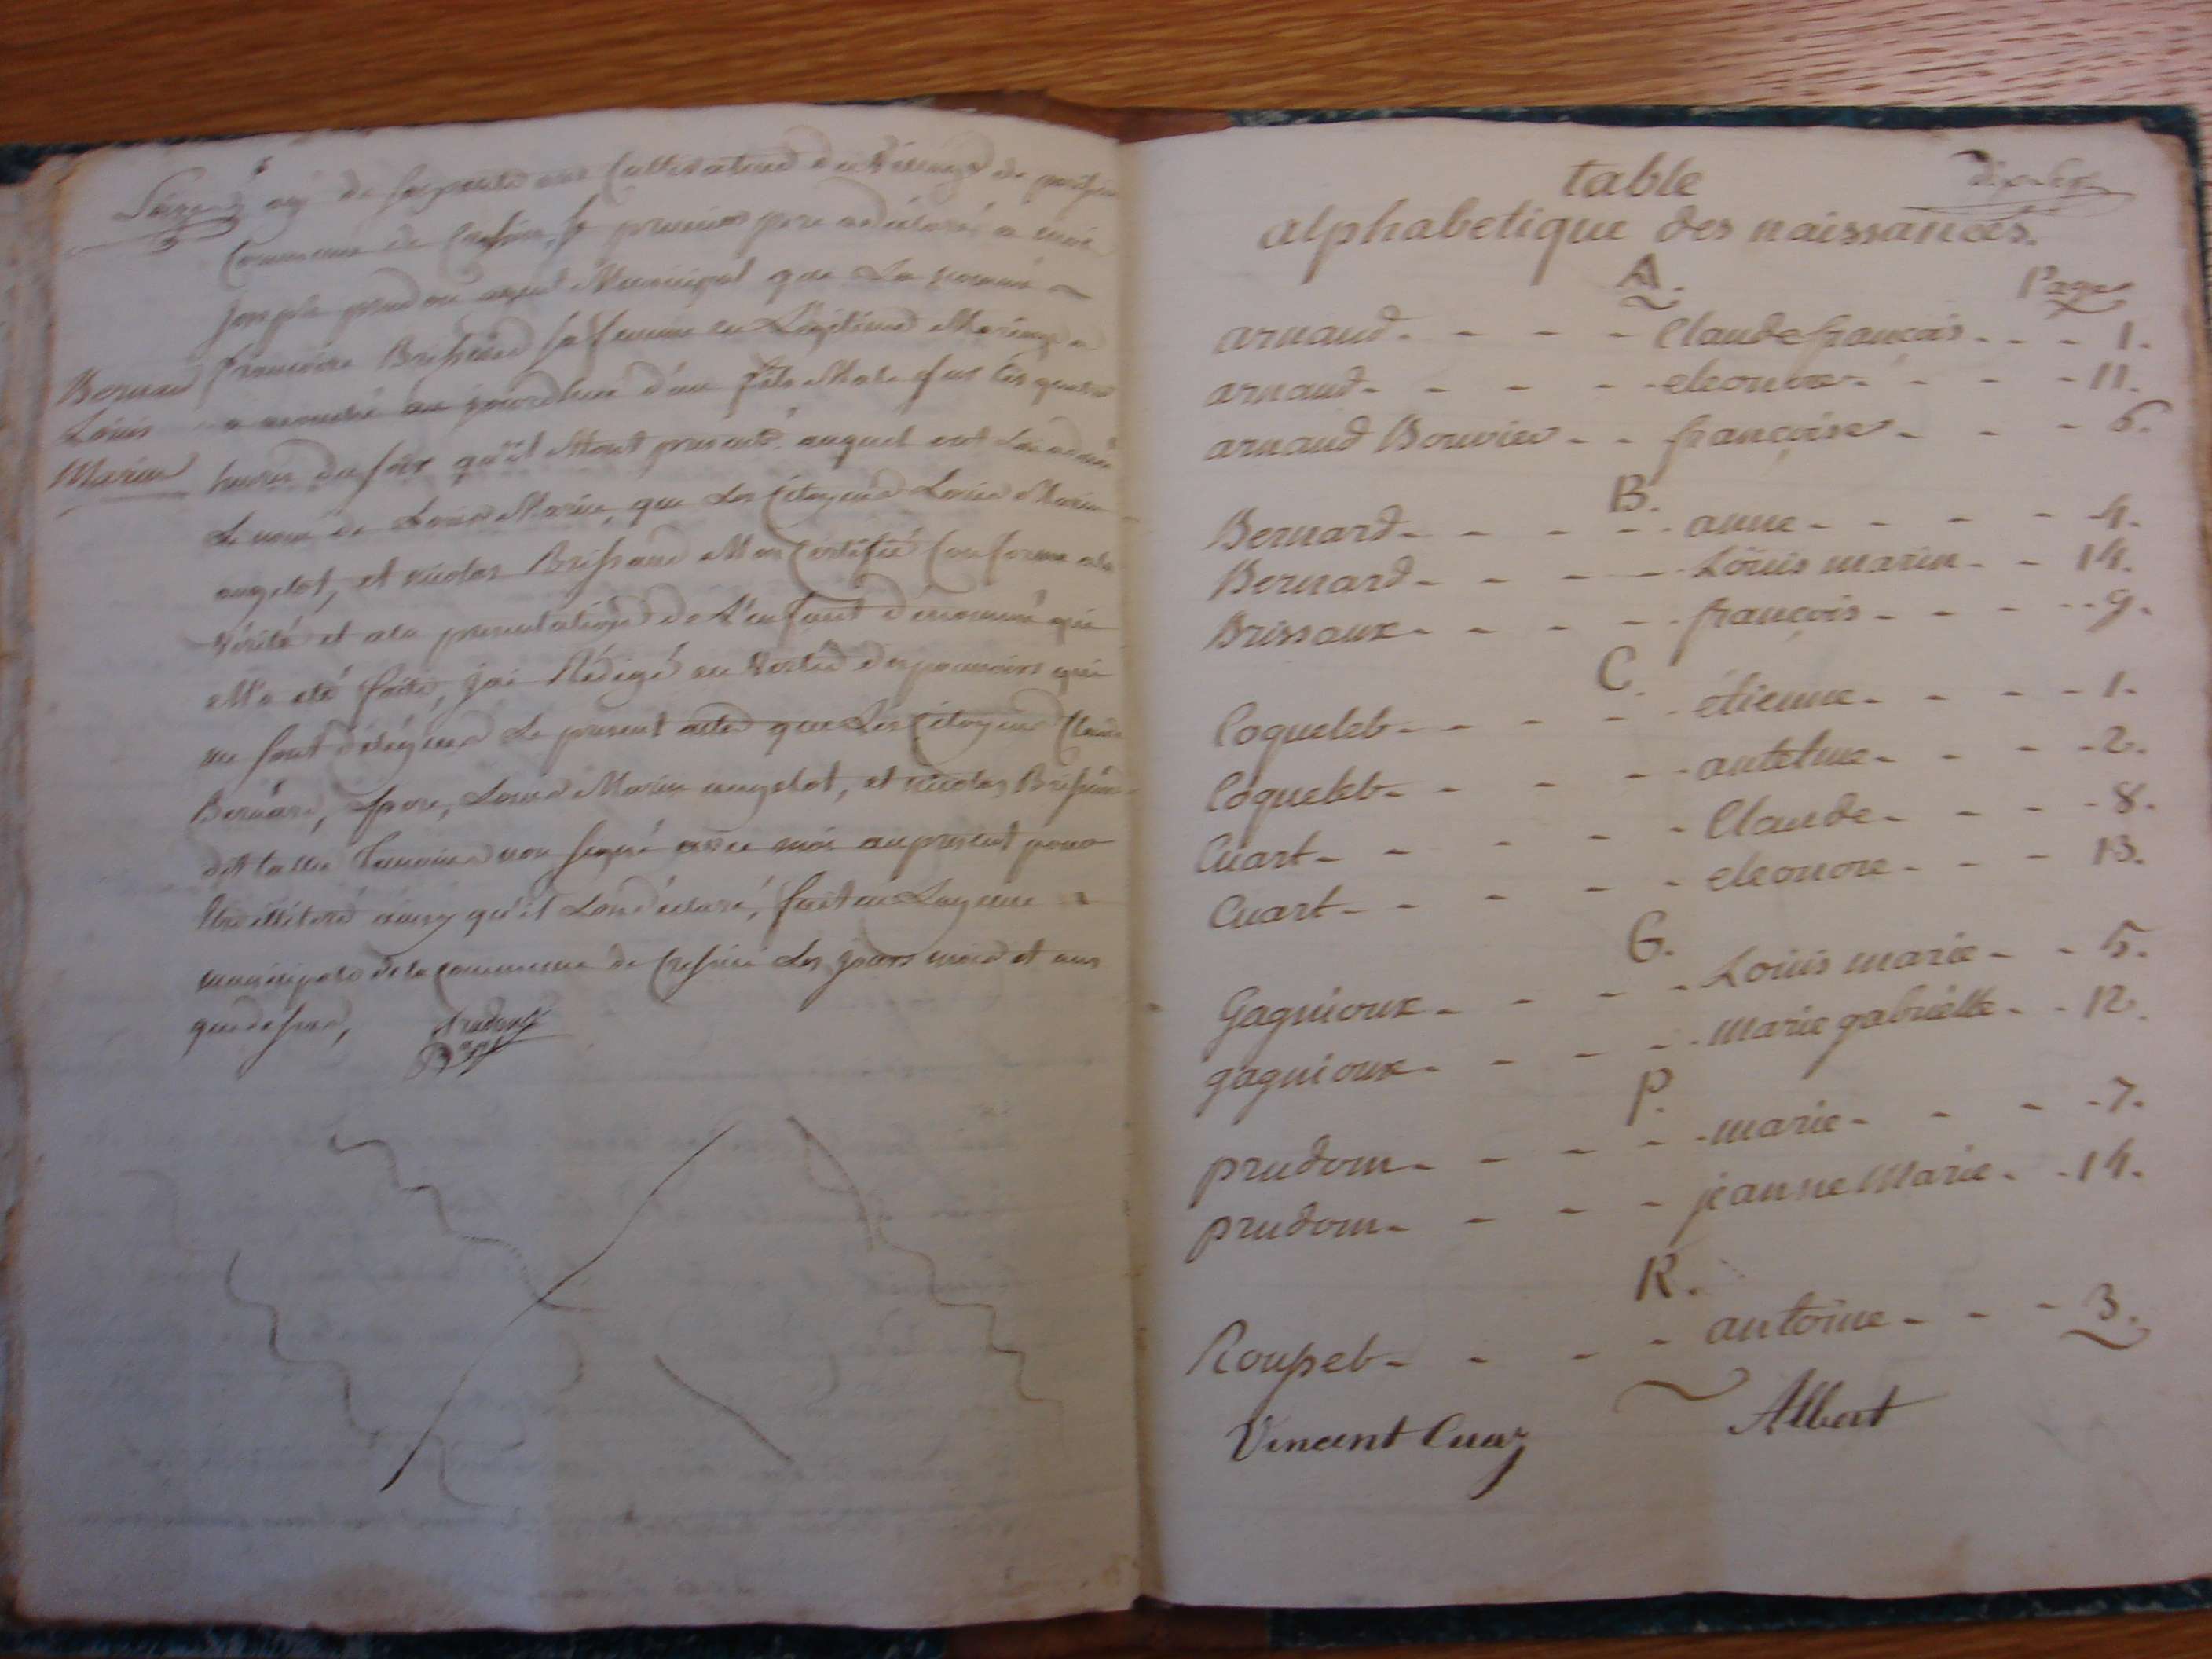 agé de soixante ans Cultivateur du Village de
Commune de le premier pere a déclaré a moi
joseph prudom agent Municipal que La nommé
françoise sa femme en Légitime Mariage
Bernard
Louis
Marin
a acouché au jourdhui d'un fils Male sur les quatre
heures du soir qu'il Mont presenté auquel ont
Le nom de Louis Marin, que Les Citoyens Louis Marin
augelot, et nicolas Brissaud Mon Certifié Conforme a la
Vérité et ala presentation de L'enfant dénommé qui
M'a été faite, jai Rédigé en Vertu des pouvoirs qui
me sont délégués Le present acte que Les Citoyens Claude
Bernard, pere, Louis Marin augelot, et nicolas
non signé avec moi au present pour
illitéré ainsy qu'il Lon déclaré, fait en
municipale de la Commune de Les jours mois et ans
que dessus, prudom
table
alphabetique des naissances.
A. Page
arnaud - - - - Claude françois - - - 1.
arnaud - - - - eleonore - - - - 11.
arnaud Bouvier - - françoise - - - 6.
B.
Bernard - - - - anne - - - - 4.
Bernard - - - - Louis marin - - 14.
Brissaux - - - - françois - - - - 9.
C.
Coquelet - - - - étienne - - - - 1.
Coquelet - - - - antelme - - - 2.
Cuart - - - - Claude - - - - 8.
Cuart - - - - eleonore - - - 13.
G.
Gagnioux - - - - Louis marie - - 5.
gagnioux - - - - marie gabrielle - - 12.
P.
prudom - - - - marie - - - - 7.
prudom - - - - jeanne Marie - - 14.
R.
Rousset - - - - antoine - - - 3.
Vincent Cuaz Albert